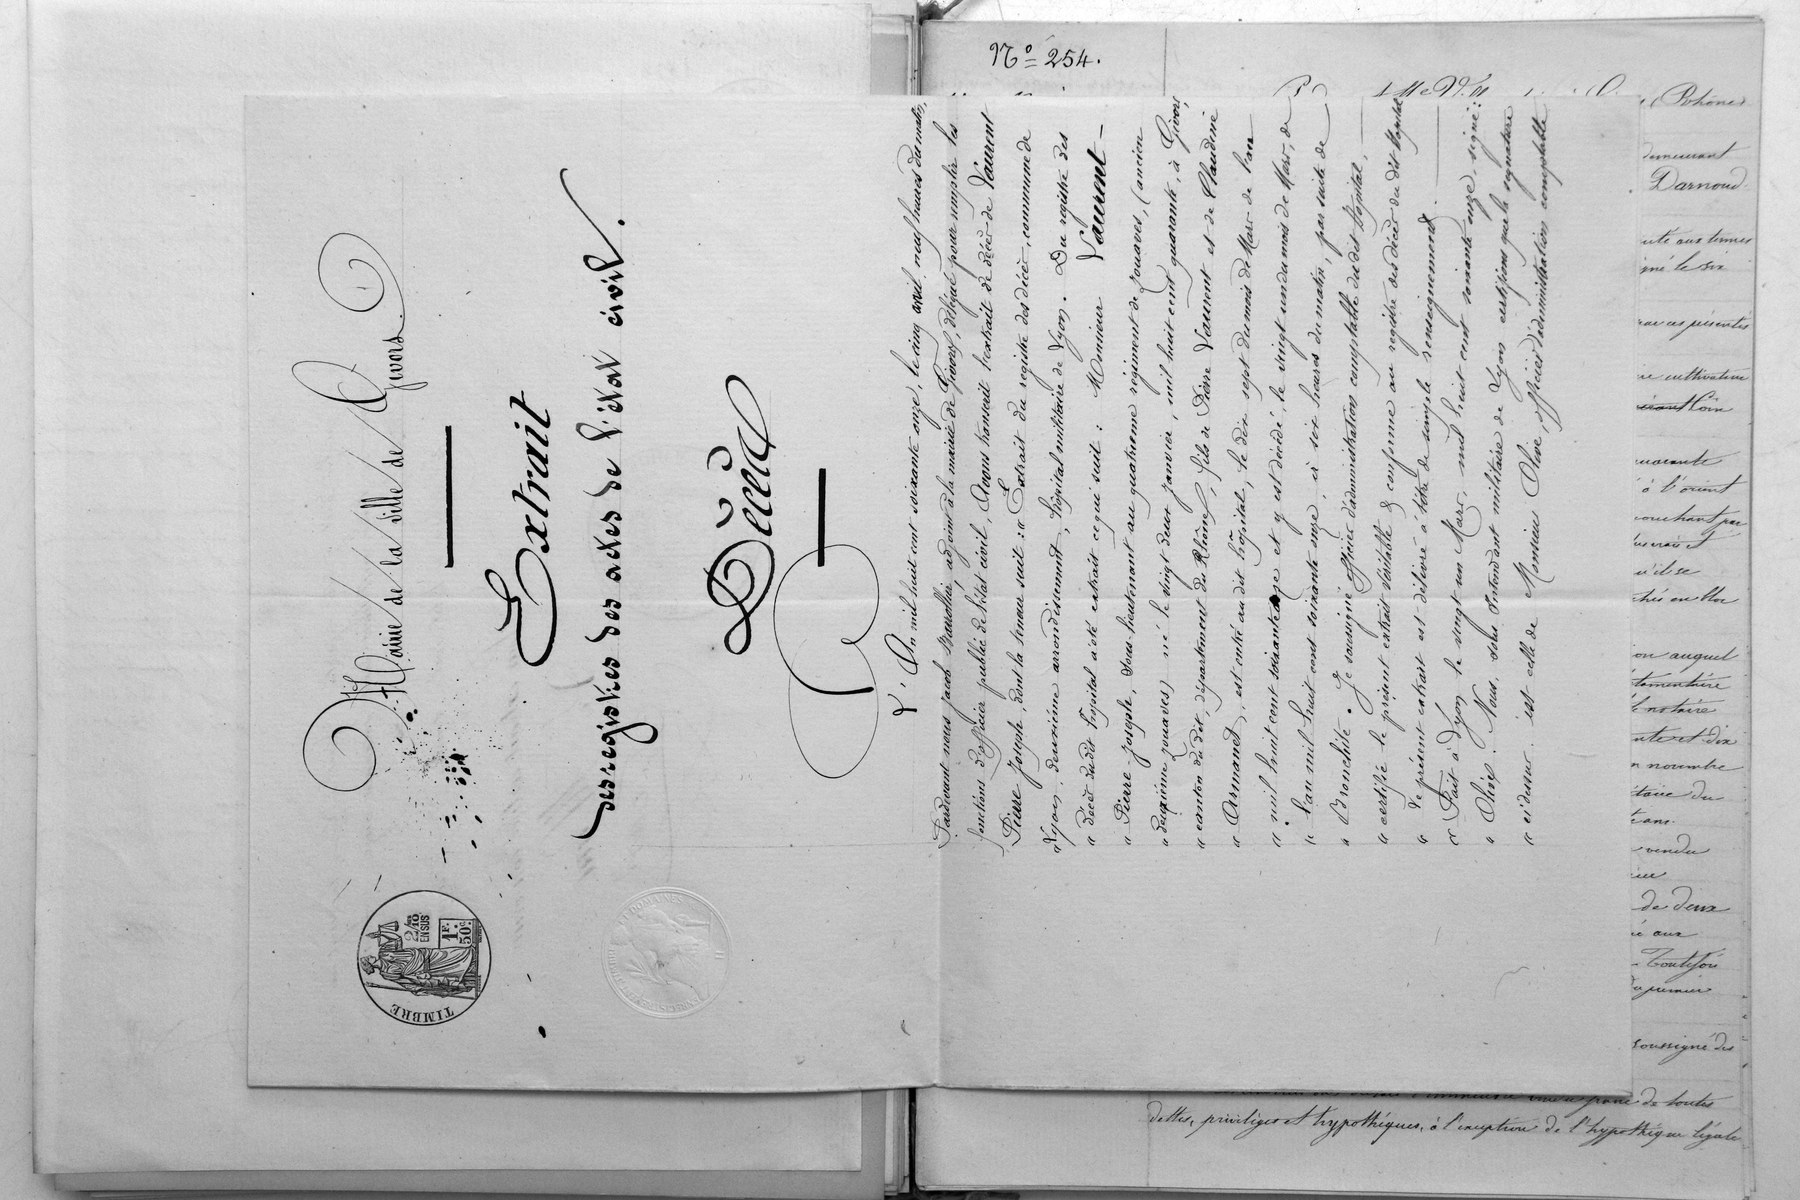 Mairie de la ville de Givors.
Extrait
des registres des actes de l'état civil.
Décès
TIMBRE
2/10 EN SUS
1F. 50c.
L'An mil huit cent soixante onze, le cinq avril, neuf heures du matin,
Pardevant nous Jacob adjoint à la mairie de Givors, délégué pour remplir les
fonctions d'officier public de l'état civil, Avons transcrit l'extrait de décès de Laurent
Pierre Joseph, dont la teneur suit : « Extrait du registre des décès, commune de
« Lyon, deuxième arrondissement, hôpital militaire de Lyon. Du registre des
« décès du dit hôpital a été extrait ce qui suit : Monsieur Laurent —
« Pierre-Joseph, sous-lieutenant au quatrième régiment de zouaves, (ancien
« deuxième zouaves) né le vingt deux janvier, mil huit cent quarante, à Givors,
« canton du dit, département du Rhône, fils de Pierre Laurent et de Claudine
« Armanet, est entré au dit hôpital, le dix sept du mois de Mars de l'an
« mil huit cent soixante onze et y est décédé, le vingt un du mois de Mars, de
« l'an mil huit cent soixante onze, à six heures du matin, par suite de
« Bronchite. Je soussigné officier d'administration comptable du dit hôpital,
« certifie le présent extrait véritable & conforme au registre des décès du dit hôpital
« Le présent extrait est délivré à titre de simple renseignement.
« Fait à Lyon le vingt un Mars, mil huit cent soixante onze, signé :
« Olive. Nous, sous Intendant militaire de Lyon certifions que la signature
« ci dessus est celle de Monsieur Olive, officier d'administration comptable
N° 254.
(Rhône)
demeurant
Darnoud
aux termes
le six
présentés
cultivateur
Loin
quarante
à l'orient
couchant par
qu'il se
en bloc
auquel
notaire
et dix
novembre
du
vendu
de deux
aux
Toutefois
premier
soussigné des
de toutes
dettes, privilèges et hypothèques, à l'exception de l'hypothèque légale